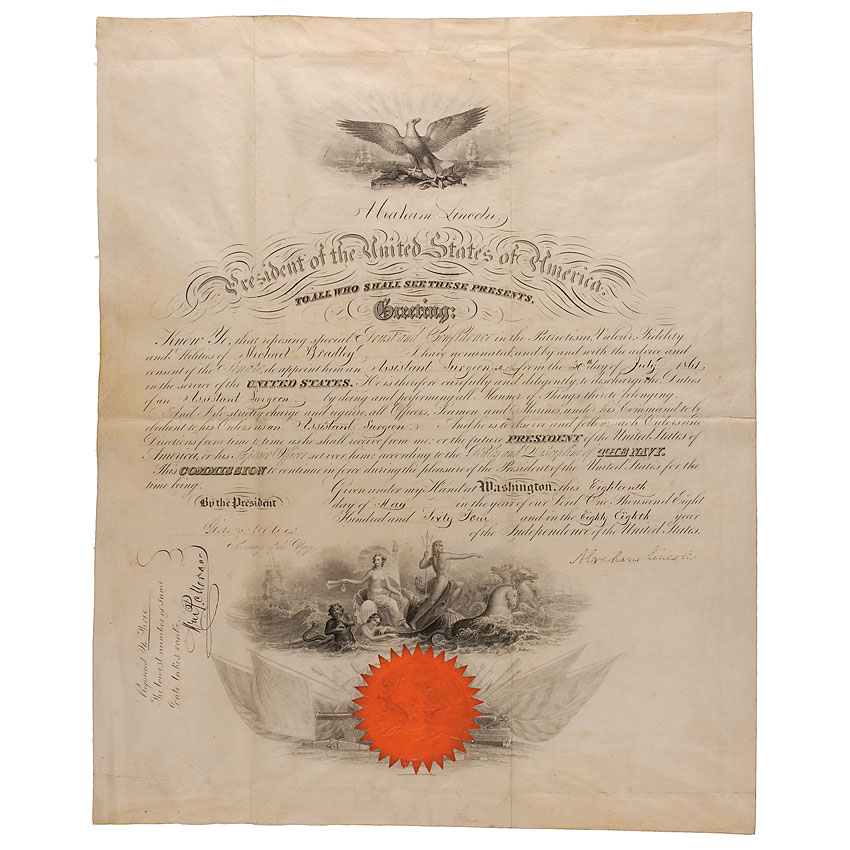 Abraham Lincoln,
President of the United States of America.
TO ALL WHO SHALL SEE THESE PRESENTS,
Greeting:
Know Ye, that reposing special Trust and Confidence in the Patriotism, Valour, Fidelity
and Abilities of Michael Bradley, I have nominated and by and with the advice and
consent of the Senate do appoint him an Assistant Surgeon from the 30th day of July 1861
in the service of the UNITED STATES. He is therefore carefully and diligently to discharge the Duties
of an Assistant Surgeon by doing and performing all Manner of Things thereto belonging.
And I do strictly charge and require all Officers, Seamen and Marines under his Command to be
obedient to his Orders as an Assistant Surgeon And he is to observe and follow such Orders and
Directions from time to time as he shall receive from me, or the future PRESIDENT of the United States of
America, or his Superior Officer set over him, according to the Rules and Discipline of THE NAVY.
This COMMISSION to continue in force during the pleasure of the President of the United States for the
time being.
Given under my Hand at Washington, this Eighteenth
By the President
day of May in the year of our Lord One Thousand Eight
Hundred and Sixty Four and in the Eighty Eighth year
of the Independence of the United States.
Gideon Welles
Secretary of the Navy
Abraham Lincoln
Registered No. Three
The lowest number of same
date takes rank.